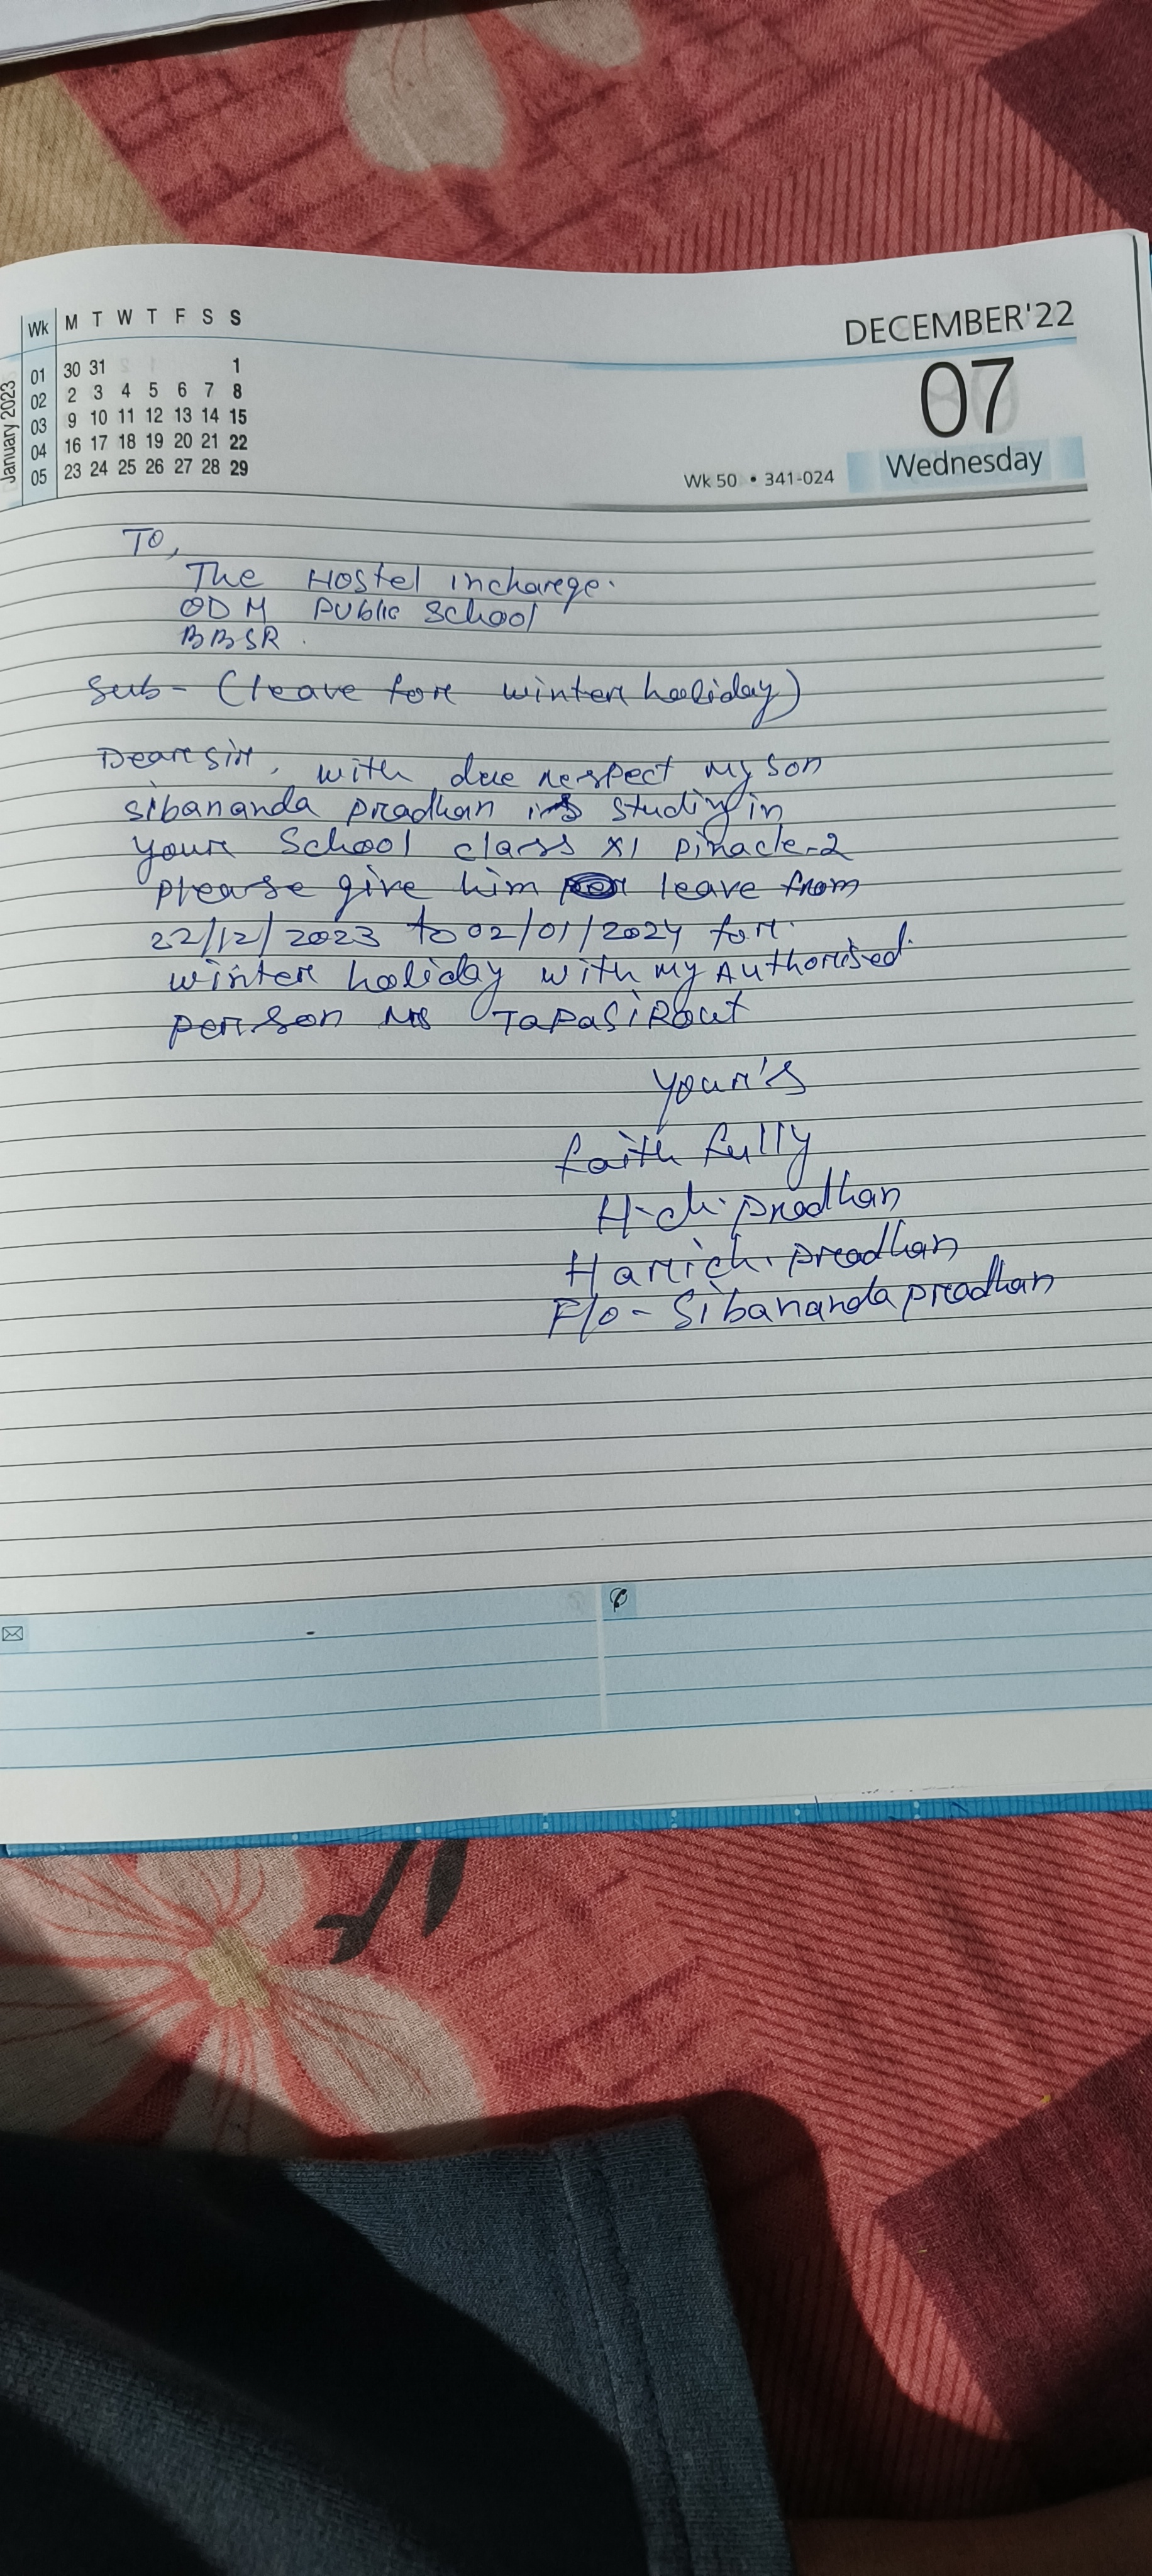 DECEMBER'22
07
Wednesday
Wk 50 • 341-024
January 2023
Wk M T W T F S S
01 30 31 1
02 2 3 4 5 6 7 8
03 9 10 11 12 13 14 15
04 16 17 18 19 20 21 22
05 23 24 25 26 27 28 29
TO,
The Hostel incharege.
ODM Public School
BBSR.
Sub- (leave fore winter holiday)
Deare sir, with due respect my son
sibananda preadhan is studing in
youre School class XI pinacle-2
please give him leave from
22/12/2023 to 02/01/2024 for
winter holiday with my Authorised
person Mrs Tapasi Rout
Your's
faith fully
H-ch. pradhan
Harich. preadhan
F/o - Sibananda preadhan